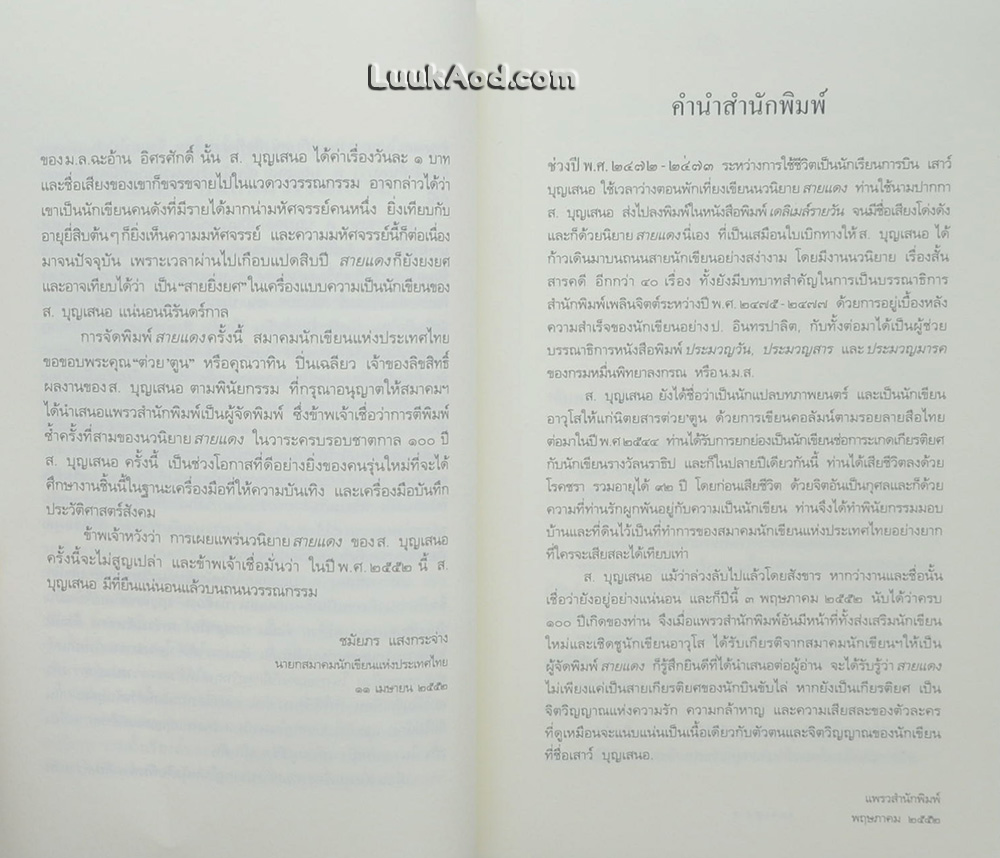 LuukAod.com
ของม.ล.ฉะอ้าน อิศรศักดิ์ นั้น ส. บุญเสนอ ได้ค่าเรื่องวันละ ๑ บาท
และชื่อเสียงของเขาก็ขจรขจายไปในแวดวงวรรณกรรม อาจกล่าวได้ว่า
เขาเป็นนักเขียนคนดังที่มีรายได้มากน่ามหัศจรรย์คนหนึ่ง ยิ่งเทียบกับ
อายุยี่สิบต้นๆ ก็ยิ่งเห็นความมหัศจรรย์ และความมหัศจรรย์นี้ก็ต่อเนื่อง
มาจนปัจจุบัน เพราะเวลาผ่านไปเกือบแปดสิบปี สายแดงก็ยังยงยศ
และอาจเทียบได้ว่า เป็น “สายยิ่งยศ” ในเครื่องแบบความเป็นนักเขียนของ
ส. บุญเสนอ แน่นอนนิรันดร์กาล
การจัดพิมพ์ สายแดง ครั้งนี้ สมาคมนักเขียนแห่งประเทศไทย
ขอขอบพระคุณ “ต่วย’ตูน” หรือคุณวาทิน ปิ่นเฉลียว เจ้าของลิขสิทธิ์
ผลงานของ ส. บุญเสนอ ตามพินัยกรรม ที่กรุณาอนุญาตให้สมาคมฯ
ได้นำเสนอแพรวสำนักพิมพ์เป็นผู้จัดพิมพ์ ซึ่งข้าพเจ้าเชื่อว่าการตีพิมพ์
ซ้ำครั้งที่สามของนวนิยาย สายแดง ในวาระครบรอบชาตกาล ๑๐๐ ปี
ส. บุญเสนอ ครั้งนี้ เป็นช่วงโอกาสที่ดีอย่างยิ่งของคนรุ่นใหม่ที่จะได้
ศึกษางานชิ้นนี้ในฐานะเครื่องมือที่ให้ความบันเทิง และเครื่องมือบันทึก
ประวัติศาสตร์สังคม
ข้าพเจ้าหวังว่า การเผยแพร่นวนิยาย สายแดง ของ ส. บุญเสนอ
ครั้งนี้จะไม่สูญเปล่า และข้าพเจ้าเชื่อมั่นว่า ในปี พ.ศ. ๒๕๕๒ นี้ ส.
บุญเสนอ มีที่ยืนแน่นอนแล้วบนถนนวรรณกรรม
ชมัยภร แสงกระจ่าง
นายกสมาคมนักเขียนแห่งประเทศไทย
๑๑ เมษายน ๒๕๕๒
คำนำสำนักพิมพ์
ช่วงปี พ.ศ. ๒๔๗๒ - ๒๔๗๓ ระหว่างการใช้ชีวิตเป็นนักเรียนการบิน เสาว์
บุญเสนอ ใช้เวลาว่างตอนพักเที่ยงเขียนนวนิยาย สายแดง ท่านใช้นามปากกา
ส. บุญเสนอ ส่งไปลงพิมพ์ในหนังสือพิมพ์ เดลิเมล์รายวัน จนมีชื่อเสียงโด่งดัง
และก็ด้วยนิยาย สายแดง นี่เอง ที่เป็นเสมือนใบเบิกทางให้ ส. บุญเสนอ ได้
ก้าวเดินมาบนถนนสายนักเขียนอย่างสง่างาม โดยมีงานนวนิยาย เรื่องสั้น
สารคดี อีกกว่า ๔๐ เรื่อง ทั้งยังมีบทบาทสำคัญในการเป็นบรรณาธิการ
สำนักพิมพ์เพลินจิตต์ระหว่างปี พ.ศ. ๒๔๗๕ - ๒๔๗๗ ด้วยการอยู่เบื้องหลัง
ความสำเร็จของนักเขียนอย่าง ป. อินทรปาลิต, กับทั้งต่อมาได้เป็นผู้ช่วย
บรรณาธิการหนังสือพิมพ์ ประมวญวัน, ประมวญสาร และ ประมวญมารค
ของกรมหมื่นพิทยาลงกรณ หรือ น.ม.ส.
ส. บุญเสนอ ยังได้ชื่อว่าเป็นนักแปลบทภาพยนตร์ และเป็นนักเขียน
อาวุโสให้แก่นิตยสารต่วย’ตูน ด้วยการเขียนคอลัมน์ตามรอยลายสือไทย
ต่อมาในปี พ.ศ ๒๕๔๔ ท่านได้รับการยกย่องเป็นนักเขียนช่อการะเกดเกียรติยศ
กับนักเขียนรางวัลนราธิป และก็ในปลายปีเดียวกันนี้ ท่านได้เสียชีวิตลงด้วย
โรคชรา รวมอายุได้ ๙๒ ปี โดยก่อนเสียชีวิต ด้วยจิตอันเป็นกุศลและก็ด้วย
ความที่ท่านรักผูกพันอยู่กับความเป็นนักเขียน ท่านจึงได้ทำพินัยกรรมมอบ
บ้านและที่ดินไว้เป็นที่ทำการของสมาคมนักเขียนแห่งประเทศไทยอย่างยาก
ที่ใครจะเสียสละได้เทียบเท่า
ส. บุญเสนอ แม้ว่าล่วงลับไปแล้วโดยสังขาร หากว่างานและชื่อนั้น
เชื่อว่ายังอยู่อย่างแน่นอน และก็ปีนี้ ๓ พฤษภาคม ๒๕๕๒ นับได้ว่าครบ
๑๐๐ ปีเกิดของท่าน จึงเมื่อแพรวสำนักพิมพ์อันมีหน้าที่ทั้งส่งเสริมนักเขียน
ใหม่และเชิดชูนักเขียนอาวุโส ได้รับเกียรติจากสมาคมนักเขียนฯให้เป็น
ผู้จัดพิมพ์ สายแดง ก็รู้สึกยินดีที่ได้นำเสนอต่อผู้อ่าน จะได้รับรู้ว่า สายแดง
ไม่เพียงแค่เป็นสายเกียรติยศของนักบินขับไล่ หากยังเป็นเกียรติยศ เป็น
จิตวิญญาณแห่งความรัก ความกล้าหาญ และความเสียสละของตัวละคร
ที่ดูเหมือนจะแนบแน่นเป็นเนื้อเดียวกับตัวตนและจิตวิญญาณของนักเขียน
ที่ชื่อเสาว์ บุญเสนอ.
แพรวสำนักพิมพ์
พฤษภาคม ๒๕๕๒